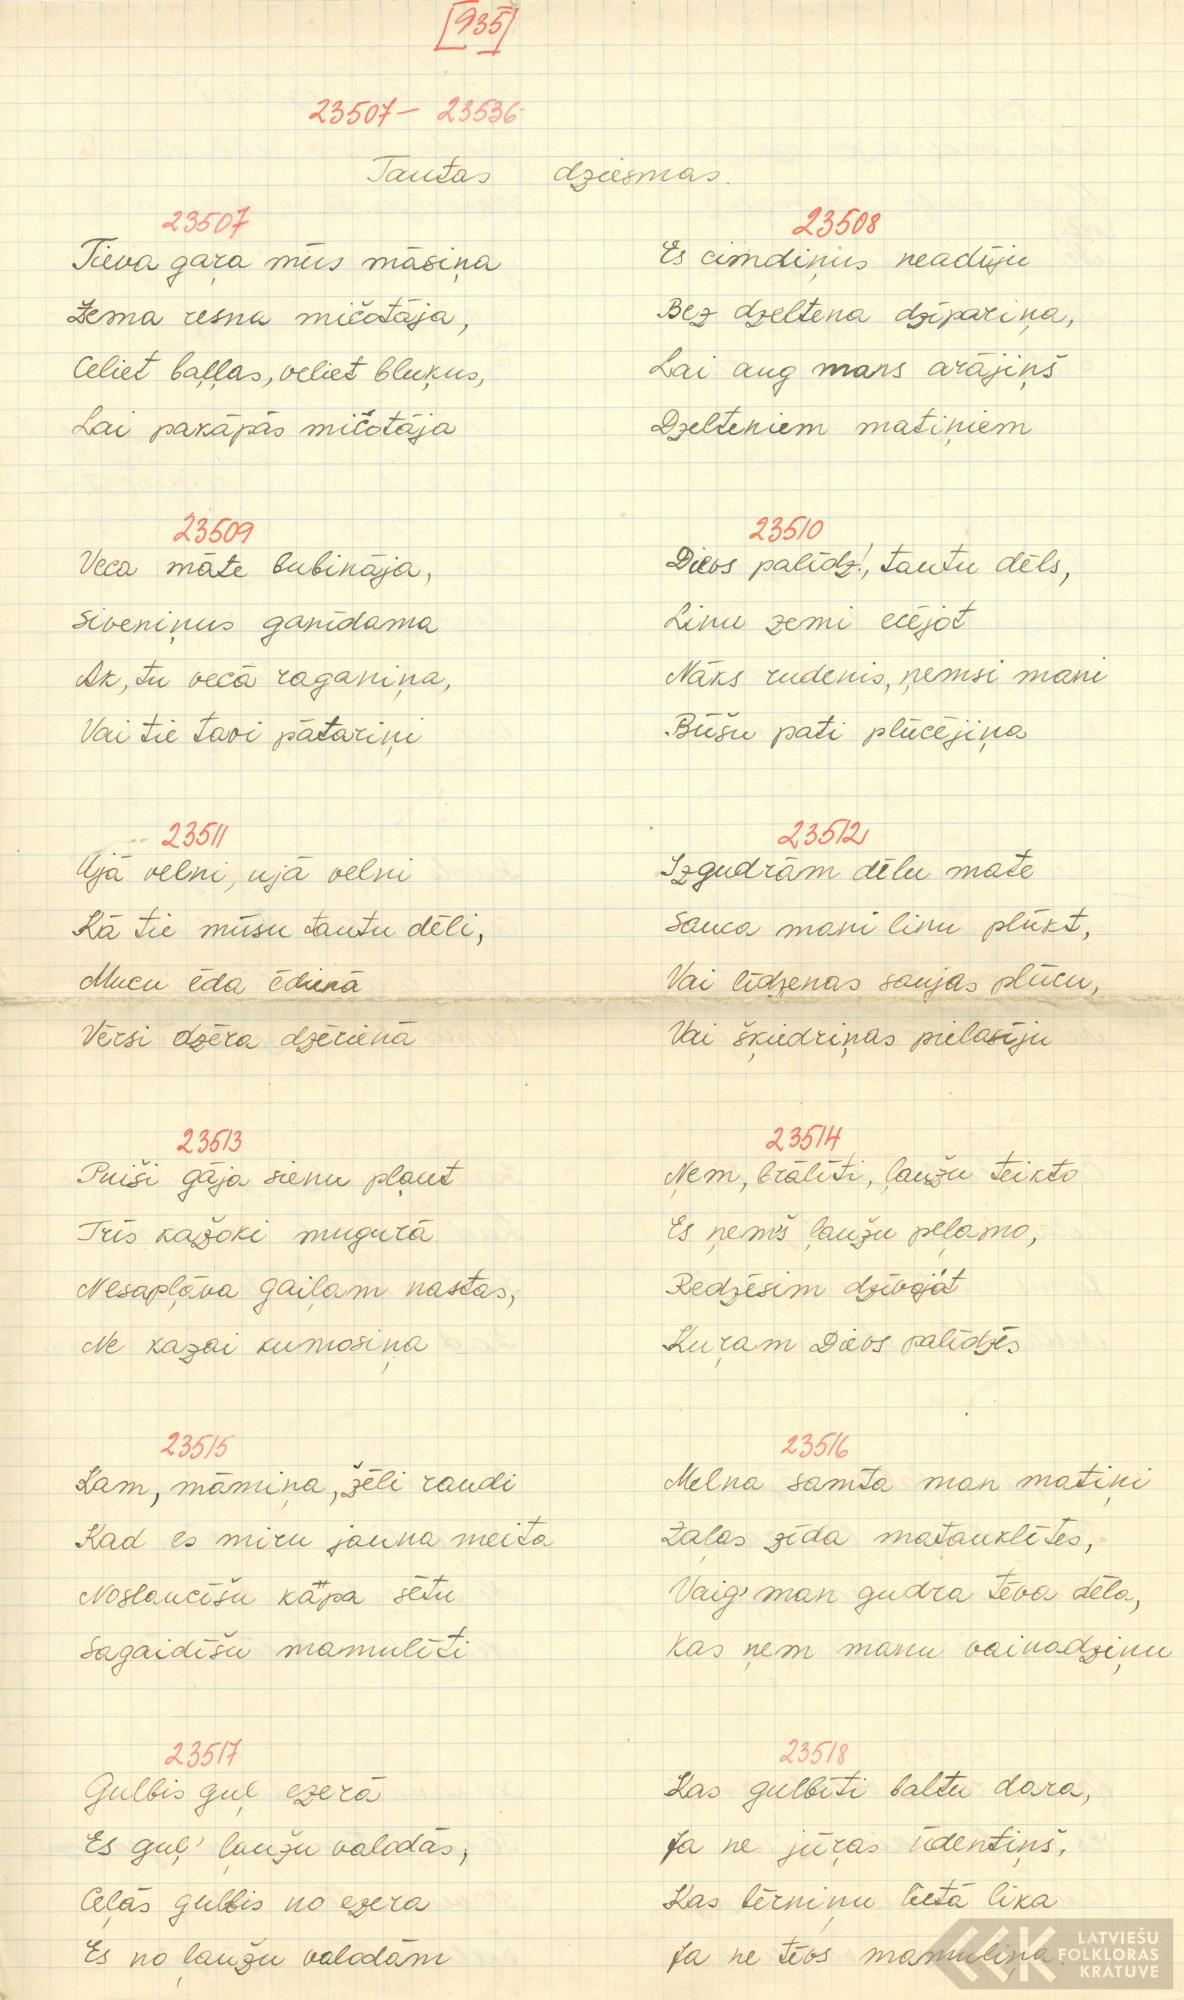 [935]
23507 – 23536
Tautas dziesmas.
23507
Tieva gaŗa mūs māsiņa
Zema resna mičotāja,
Celiet baļļas, veliet bluķus,
Lai pakāpās mičotāja
23508
Es cimdiņus neadīju
Bez dzeltena dzīpariņa,
Lai aug mans arājiņš
Dzelteniem matiņiem
23509
Veca māte bubināja,
Siveniņus ganīdama
Ak, tu vecā raganiņa,
Vai tie tavi pātariņi
23510
Dievs palīdz!, tautu dēls,
Linu zemi ecējot
Nāks rudenis, ņemsi mani
Būšu pati plūcējiņa
23511
Ujā velni, ujā velni
Kā tie mūsu tautu dēli,
Mucu ēda ēdienā
Vērsi dzēra dzērienā
23512
Izgudrām dēlu mate
Sauca mani linu plūkt,
Vai līdzenas saujas plūcu,
Vai šķiedriņas pielasīju
23513
Puiši gāja sienu pļaut
Trīs kažoki mugurā
Nesapļāva gaiļam nastas,
Ne kazai kumosiņa
23514
Ņem, brālīti, ļaužu teikto
Es ņemš ļaužu peļamo,
Redzēsim dzīvojāt
Kuŗam Dievs palīdzēs
23515
Kam, māmiņa, žēli raudi
Kad es miru jauna meita
Noslaucīšu kāpa sētu
Sagaidīšu mamulīti
23516
Melna samta man matiņi
Zaļas zīda matauklītes,
Vaig' man gudra tēva dēla,
Kas ņem manu vainadziņu
23517
Gulbis guļ ezerā
Es guļ' ļaužu valodās,
Ceļās gulbis no ezera
Es no ļaužu valodām
23518
Kas gulbīti baltu dara,
Ja ne jūŗas ūdentiņš,
Kas bērniņu lietā lika
Ja ne tēvs mamuliņa.
LATVIEŠU
FOLKLORAS
KRĀTUVE